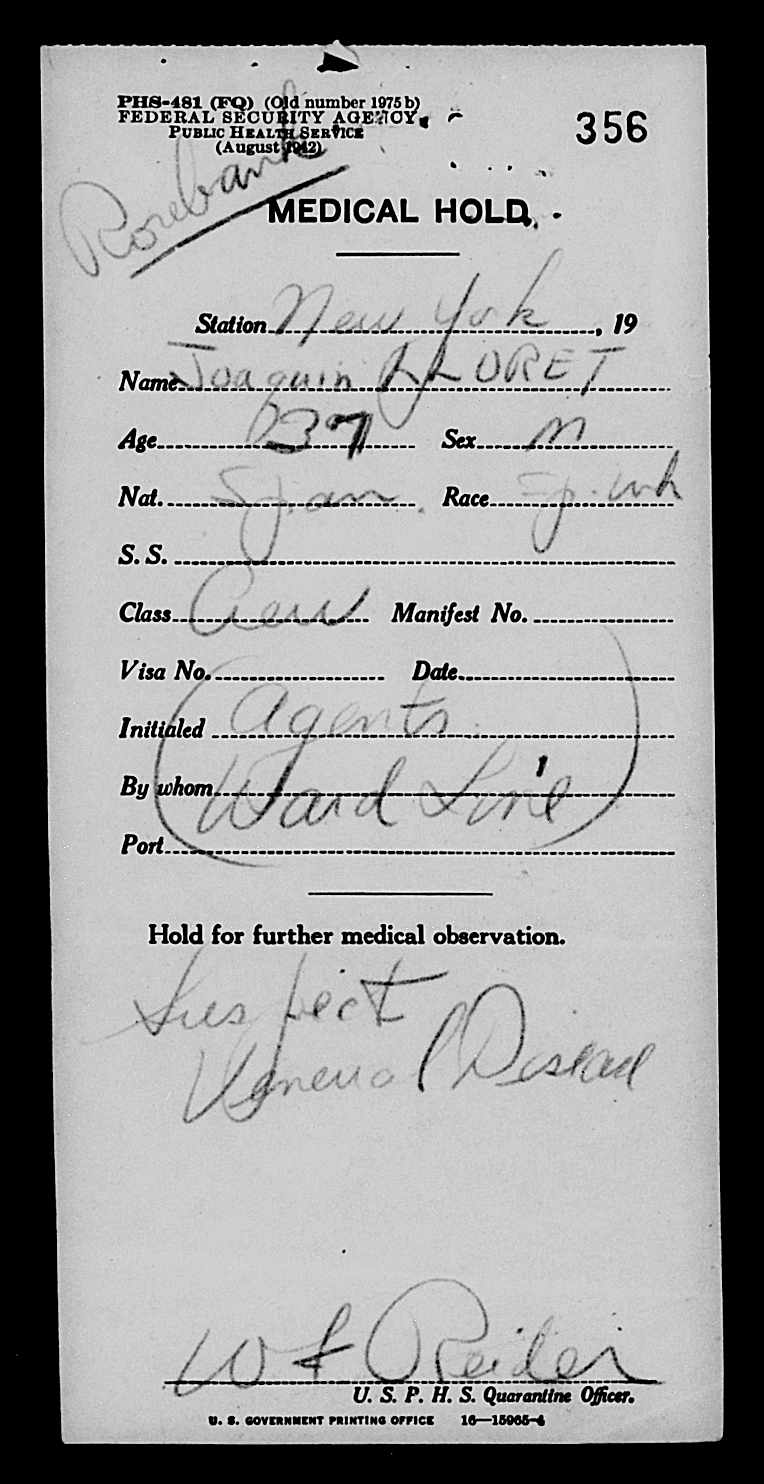 PHS-481 (FQ) (Old number 1975 b)
FEDERAL SECURITY AGENCY
PUBLIC HEALTH SERVICE
(August 1942)
356
Rosebank
MEDICAL HOLD
Station New York, 19
Name Joaquin LLORET
Age 37 Sex M
Nat. Span. Race Sp. wh
S. S.
Class Crew Manifest No.
Visa No. Date
Initialed Agents
By whom Ward Line
Port
Hold for further medical observation.
Suspect
Venereal Disease
Reider
U. S. P. H. S. Quarantine Officer.
U. S. GOVERNMENT PRINTING OFFICE 16—15965-4